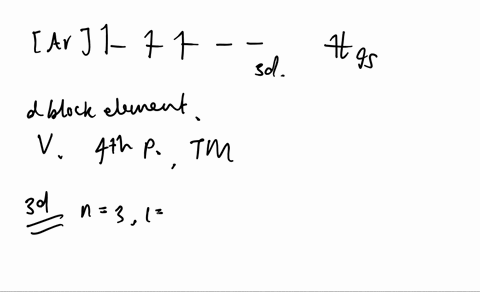 [Ar] 1 1 1 _ _ 1l
3d. 9s
d block element.
V. 4th p., TM
3d n = 3, l =